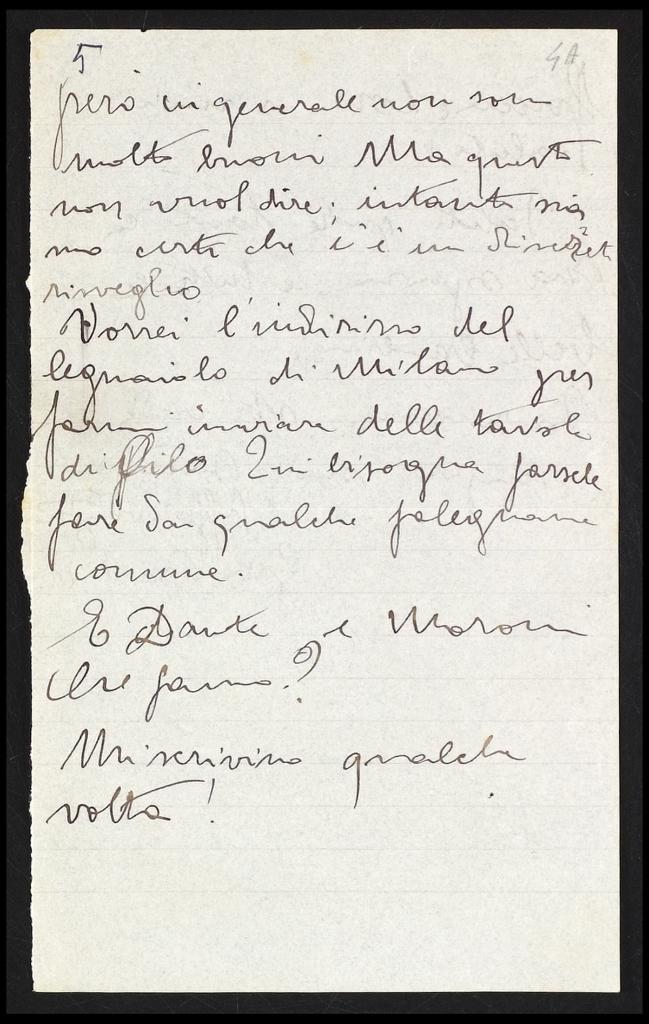 5 4A
però in generale non sono
molto buoni Ma questo
non vuol dire. intanto sia
mo certi che c'è un discreto
risveglio
Vorrei l'indirizzo del
legnaiolo di Milano per
farmi inviare delle tavole
di Qui bisogna farsele
fare da qualche falegname
comune.
E Dante e Moroni
Che fanno?
Mi scrivino qualche
volta!